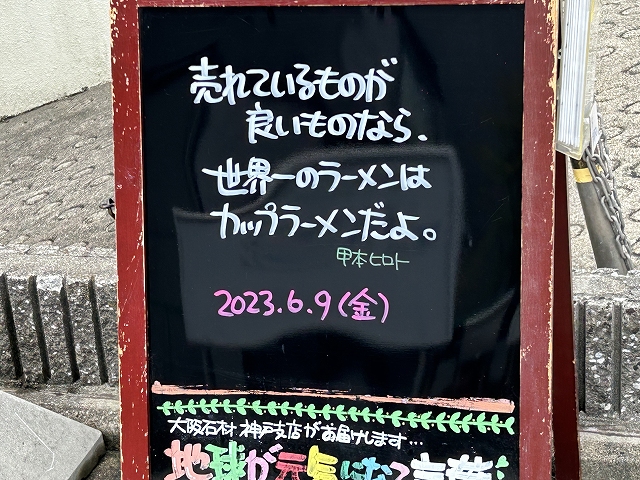 売れているものが
良いものなら、
世界一のラーメンは
カップラーメンだよ。
甲本ヒロト
2023.6.9(金)
大阪石材 神戸支店がお届けします…
地球が元気になる言葉